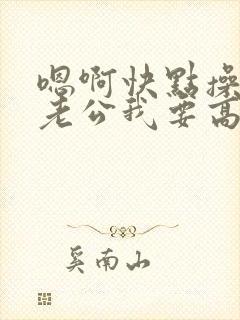 嗯啊快點操
老公我要高
奚南山